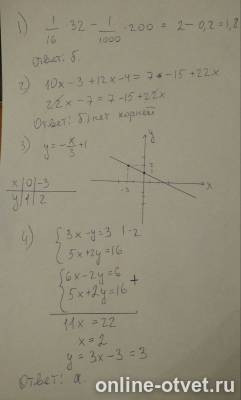 1) 1/16 · 32 - 1/1000 · 200 = 2 - 0,2 = 1,8
ответ: б.
2) 10x - 3 + 12x - 4 = 7 - 15 + 22x
22x - 7 = 7 - 15 + 22x
Ответ: б) нет корней
3) y = -x/3 + 1
y
x | 0 | -3
y | 1 | 2
-3
x
4) { 3x - y = 3 | · 2
5x + 2y = 16
{ 6x - 2y = 6
5x + 2y = 16 +
11x = 22
x = 2
y = 3x - 3 = 3
Ответ: а
online-otvet.ru